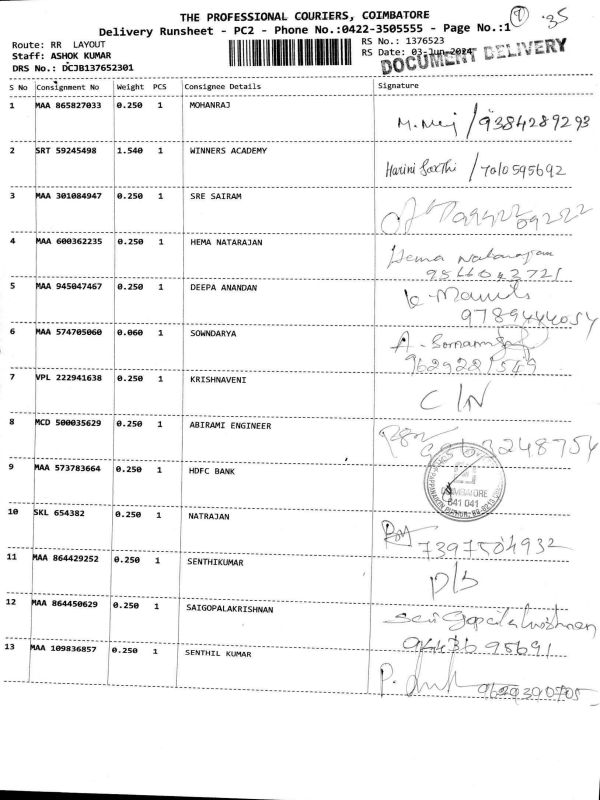 THE PROFESSIONAL COURIERS, COIMBATORE
Delivery Runsheet - PC2 - Phone No.:0422-3505555 - Page No.:1
9 35
Route: RR LAYOUT
Staff: ASHOK KUMAR
DRS No.: DCJB137652301
RS No.: 1376523
RS Date: 03-Jun-2024
DOCUMENT DELIVERY
S No Consignment No Weight PCS Consignee Details Signature
1 MAA 865827033 0.250 1 MOHANRAJ /9384289293
2 SRT 59245498 1.540 1 WINNERS ACADEMY Harini /7010595692
3 MAA 301084947 0.250 1 SRE SAIRAM
4 MAA 600362235 0.250 1 HEMA NATARAJAN Hema Natarajan
9566042721
5 MAA 945047467 0.250 1 DEEPA ANANDAN
9789444054
6 MAA 574705060 0.060 1 SOWNDARYA
9629281549
7 VPL 222941638 0.250 1 KRISHNAVENI C/N
8 MCD 500035629 0.250 1 ABIRAMI ENGINEER
9 MAA 573783664 0.250 1 HDFC BANK COIMBATORE
641 041
10 SKL 654382 0.250 1 NATRAJAN
7397504932
11 MAA 864429252 0.250 1 SENTHIKUMAR D/L
12 MAA 864450629 0.250 1 SAIGOPALAKRISHNAN Sai Gopalakrishnan
9443695691
13 MAA 109836857 0.250 1 SENTHIL KUMAR 9629390705